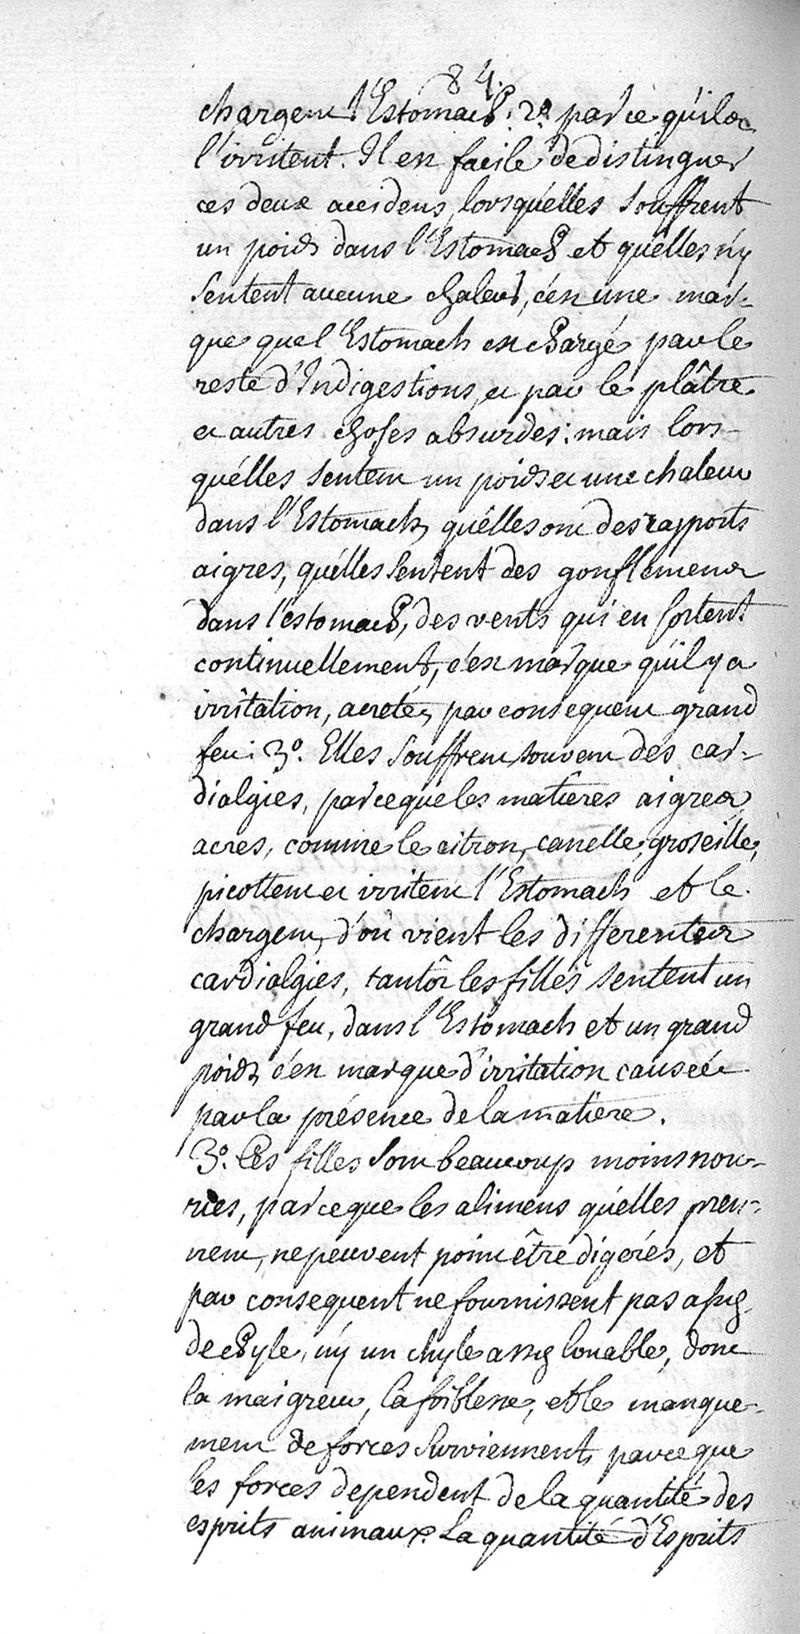 84.
chargent l'Estomach; 2º. parce qu'iles
l'irritent. Il est facile de distinguer
ces deux accidens, lorsqu'elles souffrent
un poids dans l'Estomach et qu'elles n'y
sentent aucune chaleur, c'est une mar-
que que l'Estomach est chargé par le
reste d'Indigestions, et par le plâtre
et autres choses absurdes: mais lors-
qu'élles sentent un poids et une chaleur
dans l'Estomach, qu'élles ont des rapports
aigres, qu'élles sentent des gonflemens
dans l'estomach, des vents qui en sortent
continuellement, c'est marque qu'il y a
irritation, acreté, par consequent grand
feu: 3º. Elles souffrent souvent des car-
dialgies, parceque les matieres aigres,
acres, comme le citron, canelle, groseille,
picottent et irritent l'Estomach et le
chargent, d'où vient les differentes
cardialgies, tantôt les filles sentent un
grand feu, dans l'Estomach et un grand
poids, c'est marque d'irritation causée
par la présence de la matiere.
3º. Les filles sont beaucoup moins nou-
ries, parceque les alimens qu'elles pren-
nent, ne peuvent point être digerés, et
par consequent ne fournissent pas assez
de chyle, n'y un chyle assez louable, donc
la maigreur, la foiblesse, et le manque-
ment de forces surviennent, parceque
les forces dependent de la quantité des
esprits animaux. La quantité d'Esprits